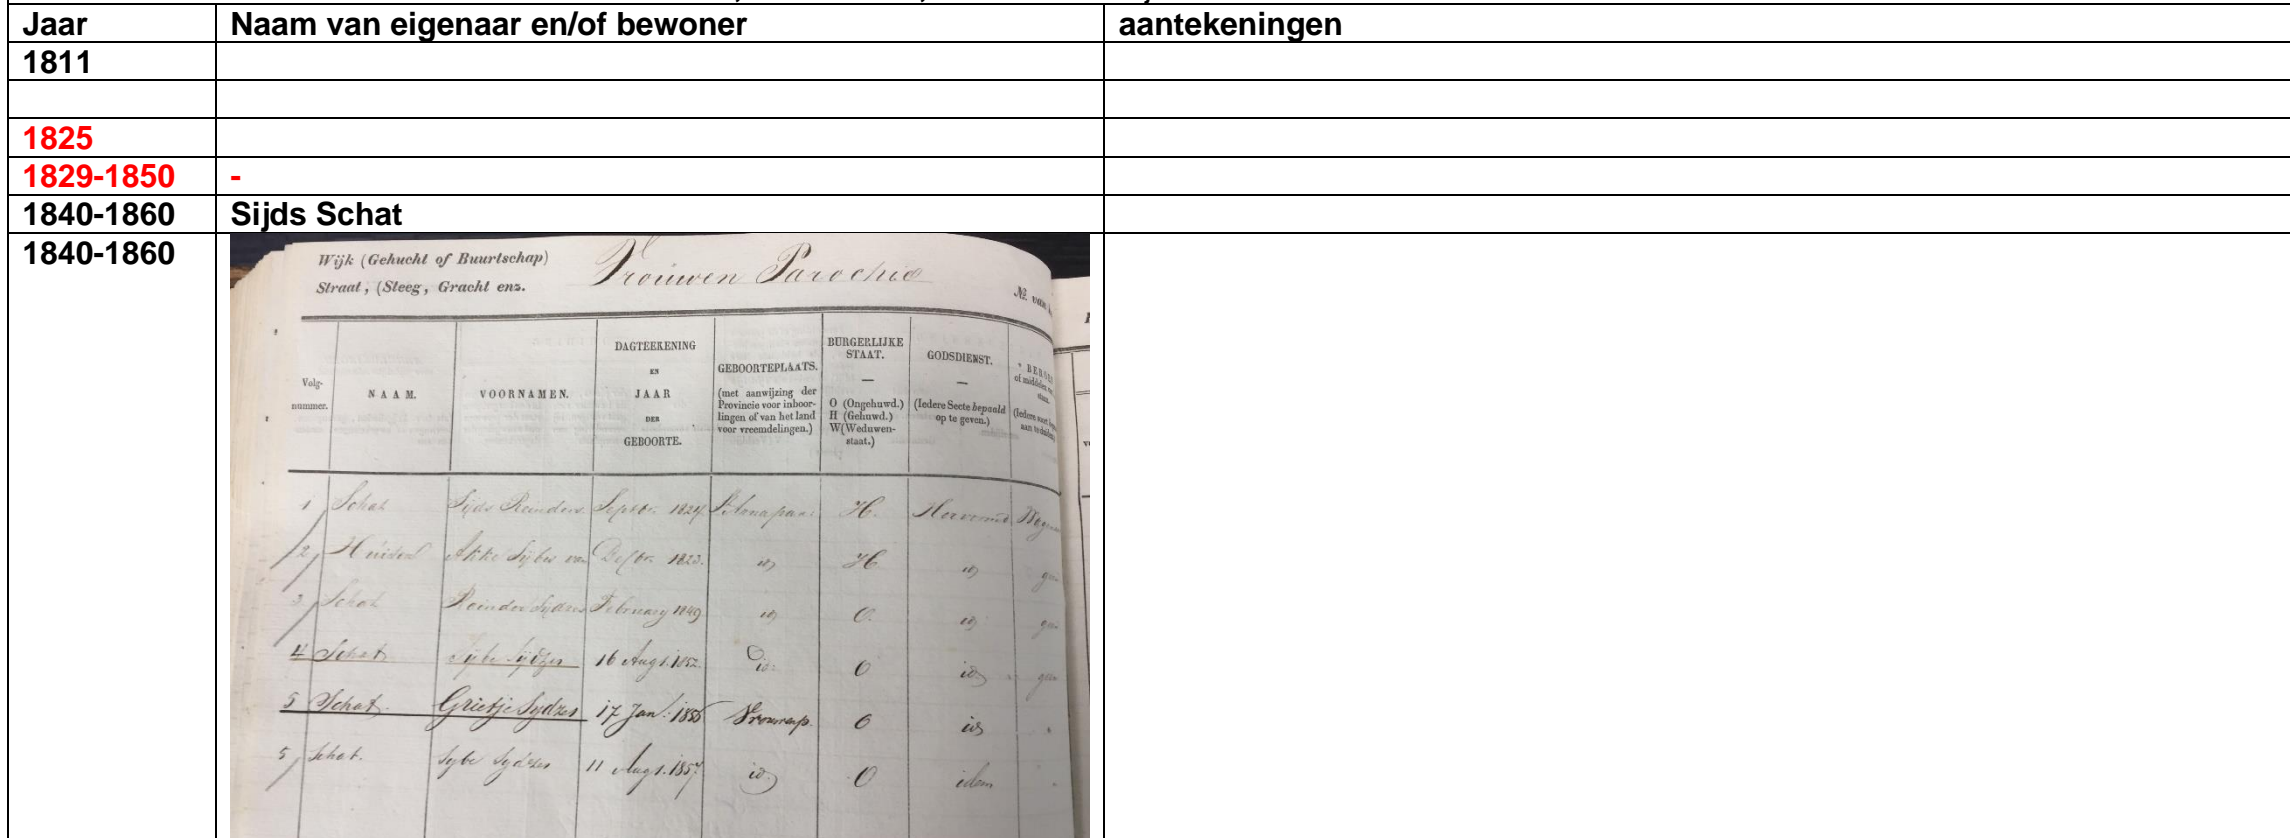 Jaar Naam van eigenaar en/of bewoner aantekeningen
1811
1825
1829-1850 -
1840-1860 Sijds Schat
1840-1860
Wijk (Gehucht of Buurtschap) Vrouwen Parochie
Straat, (Steeg, Gracht enz.
No. van
Volg-
nummer.
NAAM.
VOORNAMEN.
DAGTEEKENING
EN
JAAR
DER
GEBOORTE.
GEBOORTEPLAATS.
(met aanwijzing der
Provincie voor inboor-
lingen of van het land
voor vreemdelingen.)
BURGERLIJKE
STAAT.
—
O (Ongehuwd.)
H (Gehuwd.)
W(Weduwen-
staat.)
GODSDIENST.
—
(Iedere Secte bepaald
op te geven.)
of middelen van
(Iedere soort
aan te duiden)
1 Schat Sijds Reinders Septbr. 1824 St Annapar: H. Hervormd
2 Akke Sijbes van Decbr. 1823. id H id
3 Schat Reinder Sydzes February 1849 id O. id
4 Schat Sijbe Sijdzes 16 Augt. 1852 id: O id
5 Schat. Grietje Sydzes 17 Jan: Vrouwep. O id
5 Schat. Sybe Sydzes 11 Augt. 1857 id. O idem